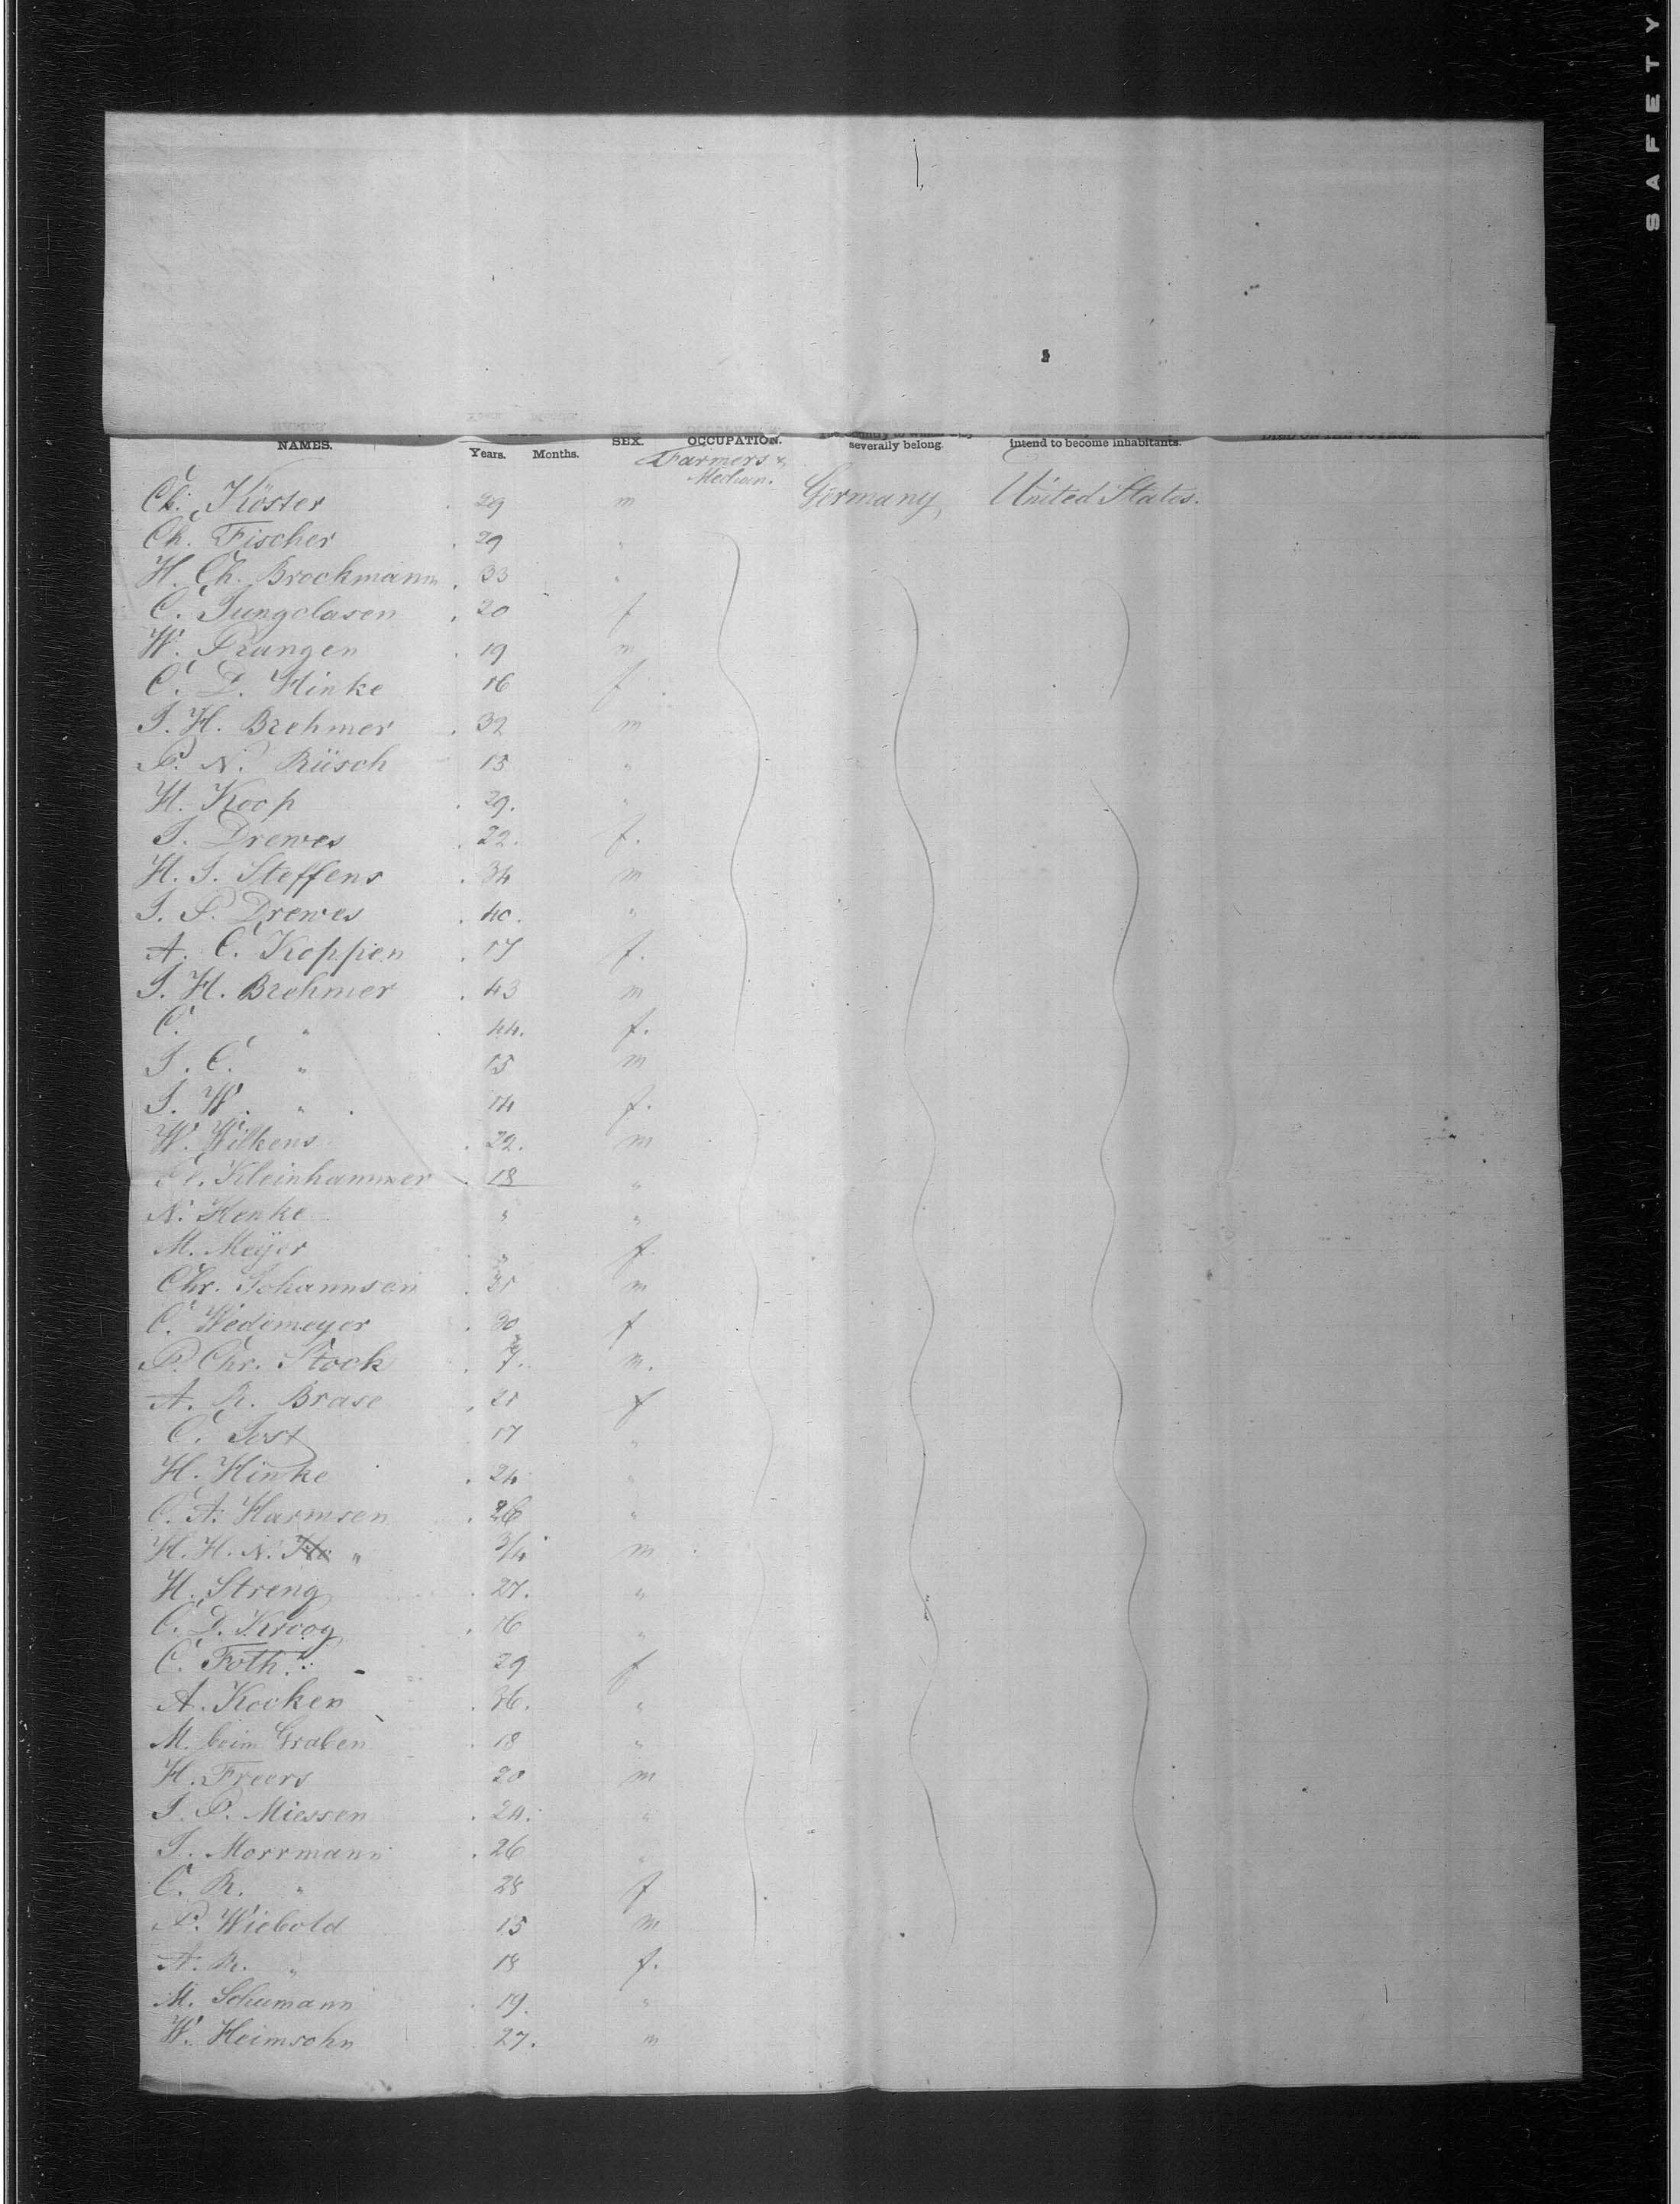 SAFETY
NAMES. Years. Months. SEX. OCCUPATION. severally belong. intend to become inhabitants.
Farmers &
Mechan.
Ch. Köster . 29 m Germany, United States.
Ch. Fischer . 29 "
H. Ch. Brockmann . 33 "
C. Jungclasen . 20 f
W. Prangen . 19 m
C. D. Hinke 16 f
J. H. Brehmer . 32 m
P. N. Rüsch 15 "
H. Koop . 29. "
J. Drewes . 22. f.
H. J. Steffens . 34 m
J. P. Drewes . 40. "
A. C. Koppen . 17 f.
J. H. Brehmer . 43 m
C. " 44. f.
J. C. " 15 m
J. W. " 14 f.
W. Wilkens . 22. m
Kleinhammer . 18 "
N. Henke " "
M. Meÿer " f
Chr. Johannsen . m
C. Wedemeyer . 30 f
P. Chr. Stock . m.
A. R. Brase . 21 f
C. Jost 17 "
H. Hinke . 24 "
C. A. Harmsen . 26 "
H. H. N. " 3/4 m
H. Streng . 27. "
C. D. Kroog . 16 "
C. Foth. 29 f
A. Kocken . 36. "
M. beim Graben . 18 "
H. Freers 20 m
J. P. Miessen . 24. "
J. Morrmann . 26 "
C. R. " 28 f
P. Wiebold 15 m
A. R. " 18 f.
M. Schumann . 19. "
W. Heimsohn 27. m